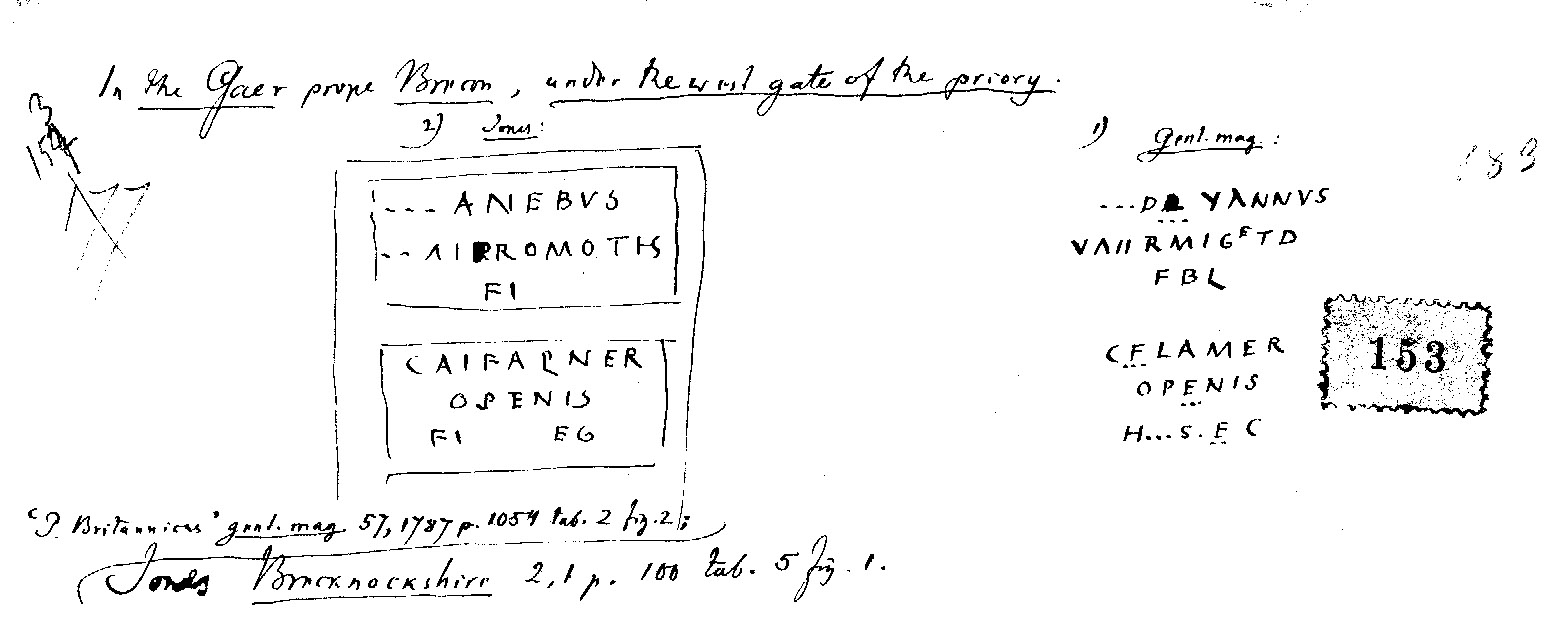 In the Gaer prope Brecon, under the west gate of the priory.
2) Jones:
--- ANEBVS
-- ΛIRROMOTHS
FI
CAIFARNER
OPENIS
FI EG
1) Gent. mag:
VΛIIRMIGETD
FBL
CFLAMER
OPENIS
H...S.EC
153
183
Britannicus" gent. mag. 57, 1787 p. 1054 tab. 2 fig. 2;
Jones Brecknockshire 2,1 p. 100 tab. 5 fig. 1.